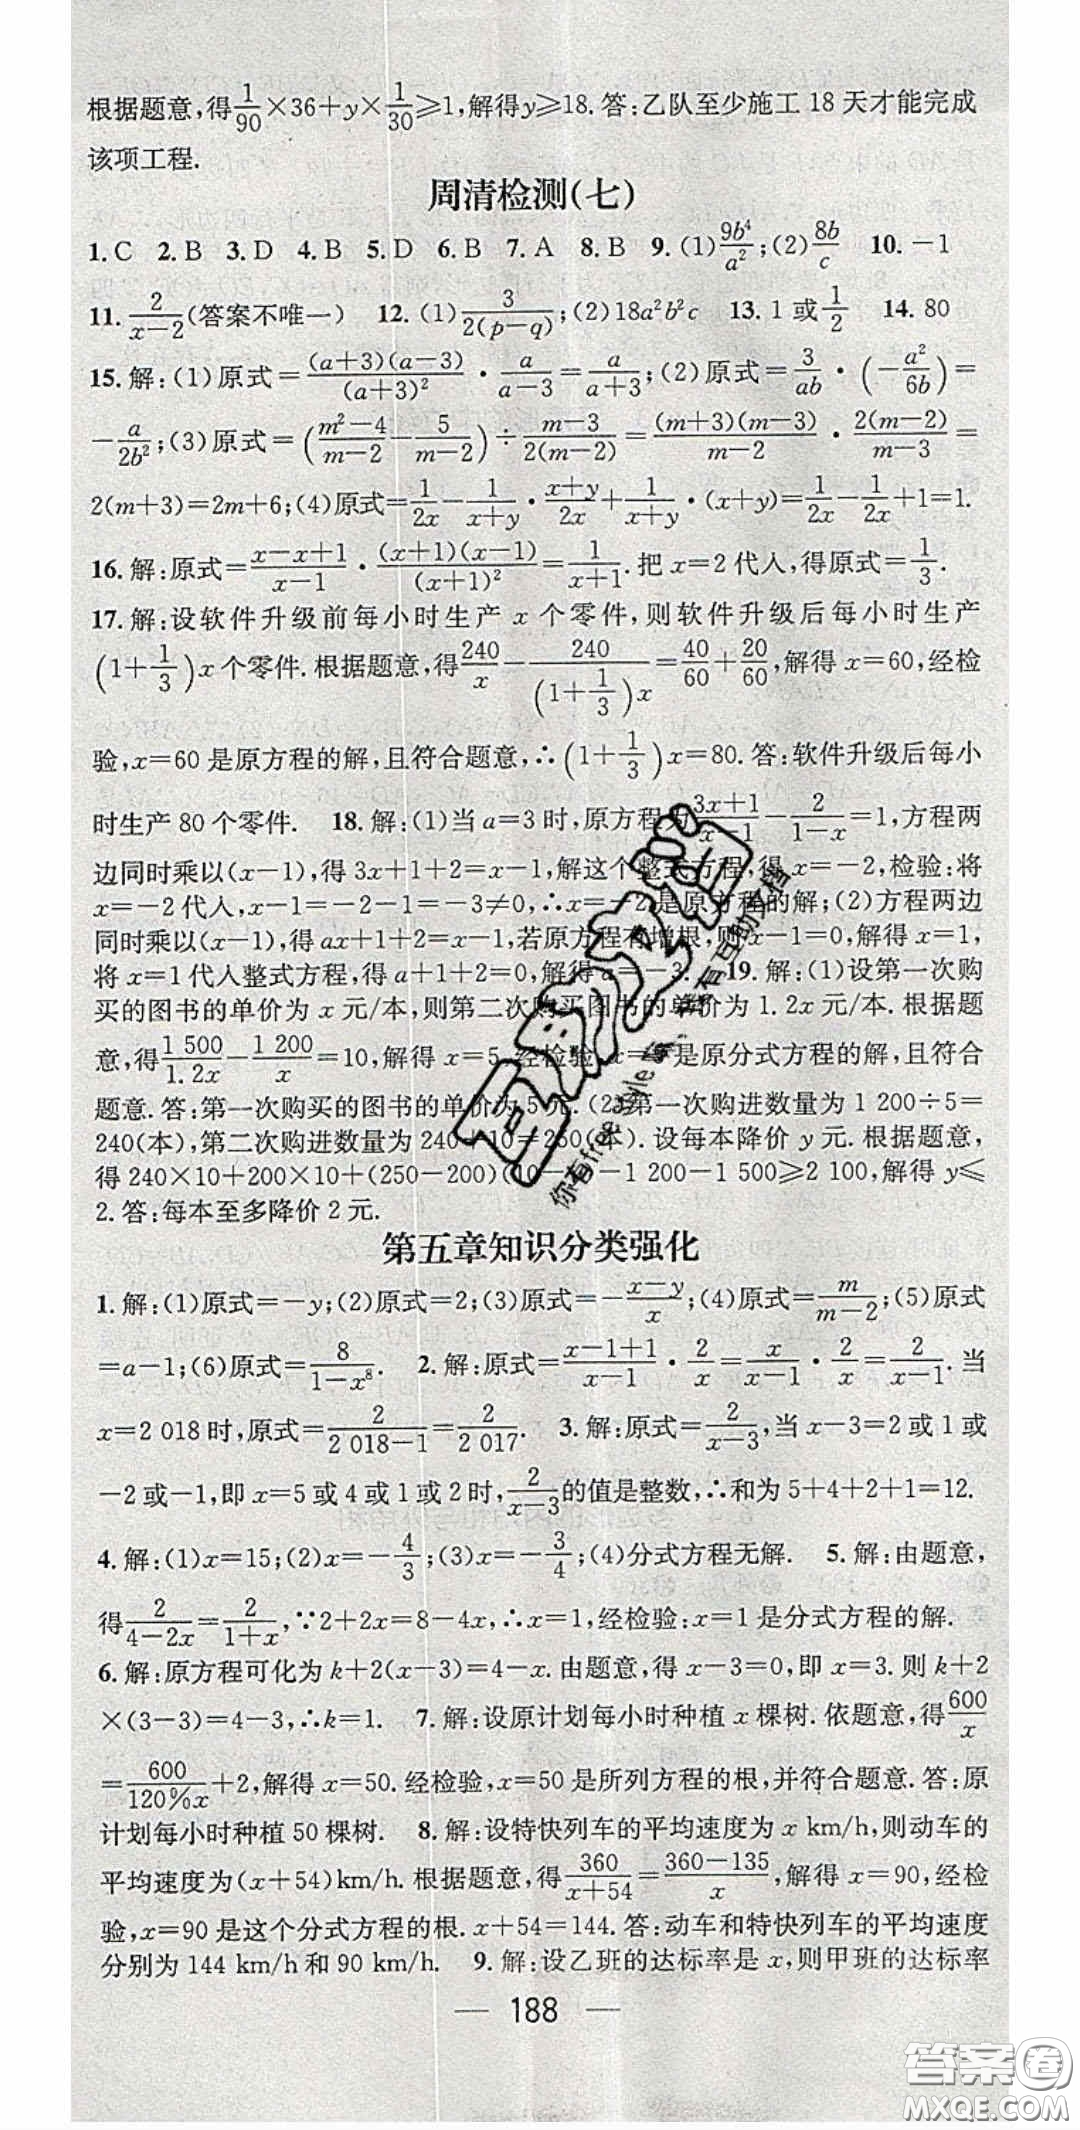 根据题意,得1/90×36+y×1/30≥1,解得y≥18.答:乙队至少施工18天才能完成
该项工程.
周清检测(七)
1.C 2.B 3.D 4.B 5.D 6.B 7.A 8.B 9.(1)9b⁴/a²;(2)8b/c 10.-1
11.2/(x-2)(答案不唯一) 12.(1)3/(2(p-q));(2)18a²b²c 13.1或1/2 14.80
15.解:(1)原式=(a+3)(a-3)/(a+3)²·a/(a-3)=a/(a+3);(2)原式=3/ab·(-a²/6b)=
-a/2b²;(3)原式=((m²-4)/(m-2)-5/(m-2))÷(m-3)/(2(m-2))=(m+3)(m-3)/(m-2)·2(m-2)/(m-3)=
2(m+3)=2m+6;(4)原式=1/2x-1/(x+y)·(x+y)/2x+1/(x+y)·(x+y)=1/2x-1/2x+1=1.
16.解:原式=(x-x+1)/(x-1)·(x+1)(x-1)/(x+1)²=1/(x+1).把x=2代入,得原式=1/3.
17.解:设软件升级前每小时生产x个零件,则软件升级后每小时生产
(1+1/3)x个零件.根据题意,得240/x-240/((1+1/3)x)=40/60+20/60,解得x=60,经检
验,x=60是原方程的解,且符合题意,∴(1+1/3)x=80.答:软件升级后每小
时生产80个零件. 18.解:(1)当a=3时,原方程为(3x+1)/(x-1)-2/(1-x)=1,方程两
边同时乘以(x-1),得3x+1+2=x-1,解这个整式方程,得x=-2,检验:将
x=-2代入,x-1=-2-1=-3≠0,∴x=-2是原方程的解;(2)方程两边
同时乘以(x-1),得ax+1+2=x-1,若原方程有增根,则x-1=0,解得x=1,
将x=1代入整式方程,得a+1+2=0,解得a=-3. 19.解:(1)设第一次购
买的图书的单价为x元/本,则第二次购买图书的单价为1.2x元/本.根据题
意,得1 500/1.2x-1 200/x=10,解得x=5.经检验,x=5是原分式方程的解,且符合
题意.答:第一次购买的图书的单价为5元.(2)第一次购进数量为1 200÷5=
240(本),第二次购进数量为240+10=250(本).设每本降价y元.根据题意,
得240×10+200×10+(250-200)(10-y)-1 200-1 500≥2 100,解得y≤
2.答:每本至多降价2元.
第五章知识分类强化
1.解:(1)原式=-y;(2)原式=2;(3)原式=-(x-y)/x;(4)原式=m/(m-2);(5)原式
=a-1;(6)原式=8/(1-x⁸). 2.解:原式=(x-1+1)/(x-1)·2/x=x/(x-1)·2/x=2/(x-1).当
x=2 018时,原式=2/(2 018-1)=2/2 017. 3.解:原式=2/(x-3),当x-3=2或1或
-2或-1,即x=5或4或1或2时,2/(x-3)的值是整数,∴和为5+4+2+1=12.
4.解:(1)x=15;(2)x=-4/3;(3)x=-3/4;(4)分式方程无解. 5.解:由题意,
得2/(4-2x)=2/(1+x),∵2+2x=8-4x,∴x=1,经检验:x=1是分式方程的解.
6.解:原方程可化为k+2(x-3)=4-x.由题意,得x-3=0,即x=3.则k+2
×(3-3)=4-3,∴k=1. 7.解:设原计划每小时种植x棵树.依题意,得600/x
=600/120%x+2,解得x=50.经检验,x=50是所列方程的根,并符合题意.答:原
计划每小时种植50棵树. 8.解:设特快列车的平均速度为x km/h,则动车的
平均速度为(x+54)km/h.根据题意,得360/(x+54)=(360-135)/x,解得x=90,经检
验,x=90是这个分式方程的根.x+54=144.答:动车和特快列车的平均速度
分别为144 km/h和90 km/h. 9.解:设乙班的达标率是x,则甲班的达标率
— 188 —
答案圈
MXQE.COM